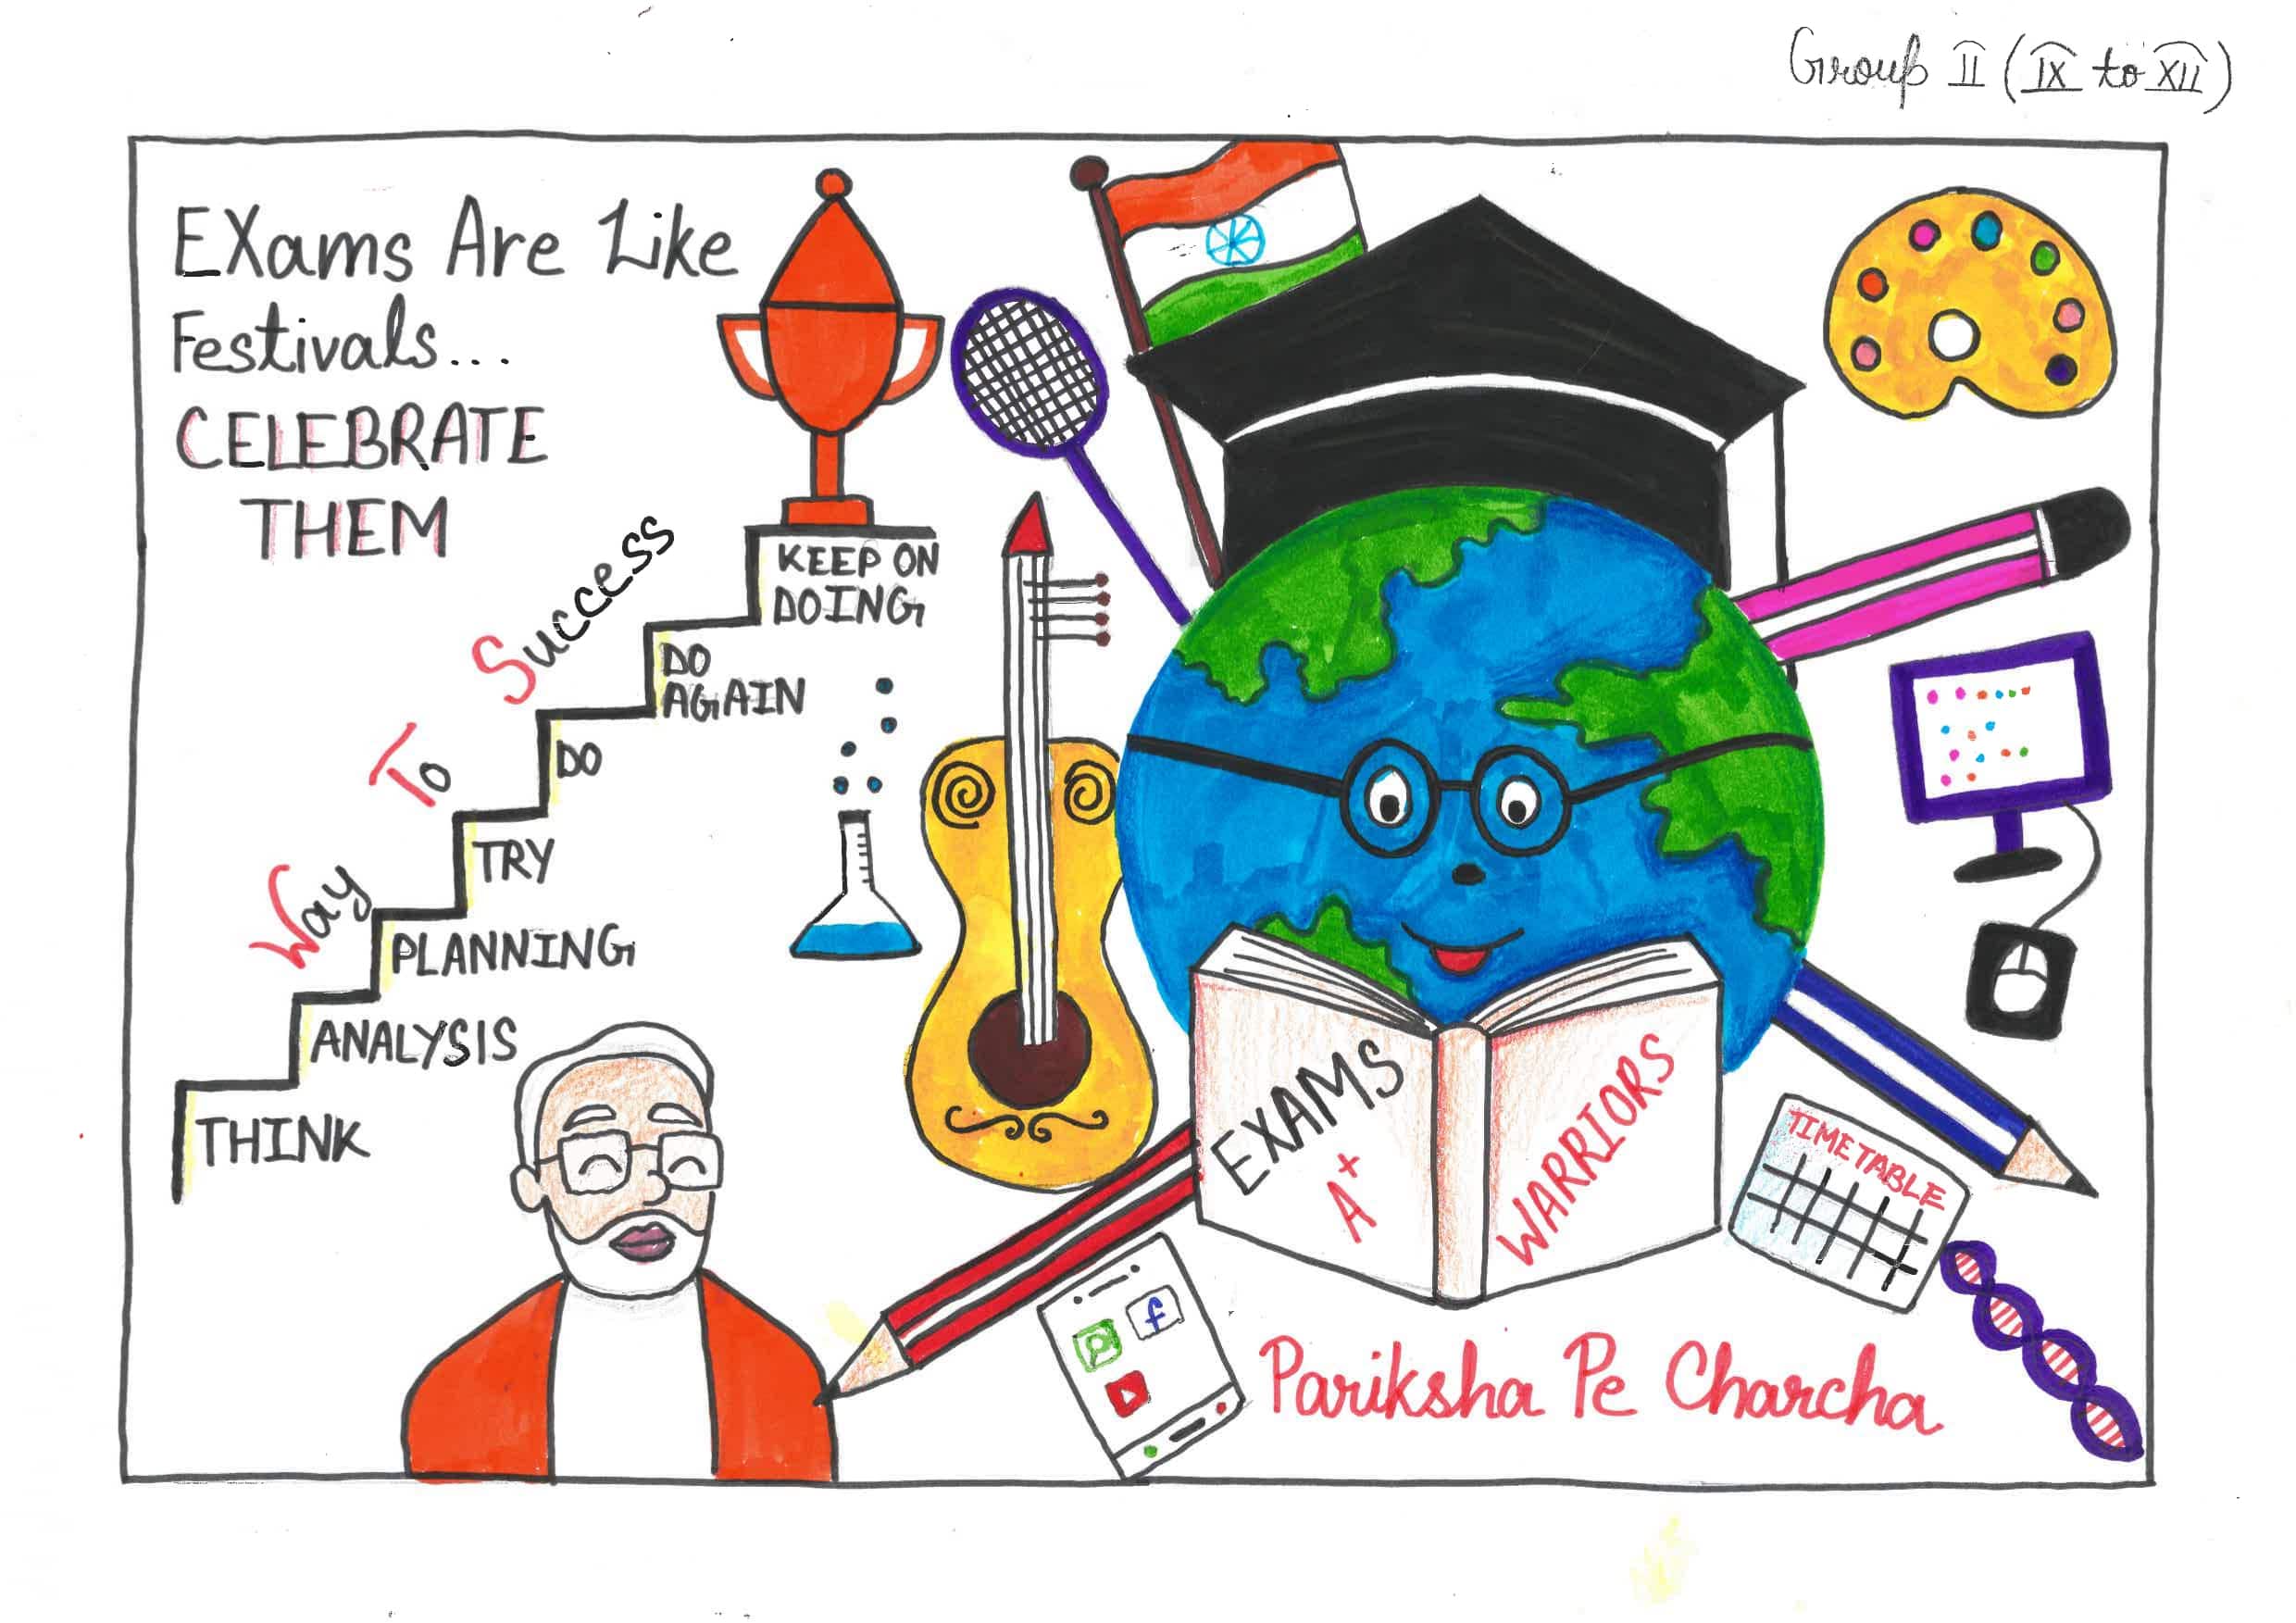 Group II (IX to XII)
EXams Are Like
Festivals...
CELEBRATE
THEM
Way To Success
KEEP ON
DOING
DO
AGAIN
DO
TRY
PLANNING
ANALYSIS
THINK
EXAMS
A+
WARRIORS
TIMETABLE
f
Pariksha Pe Charcha